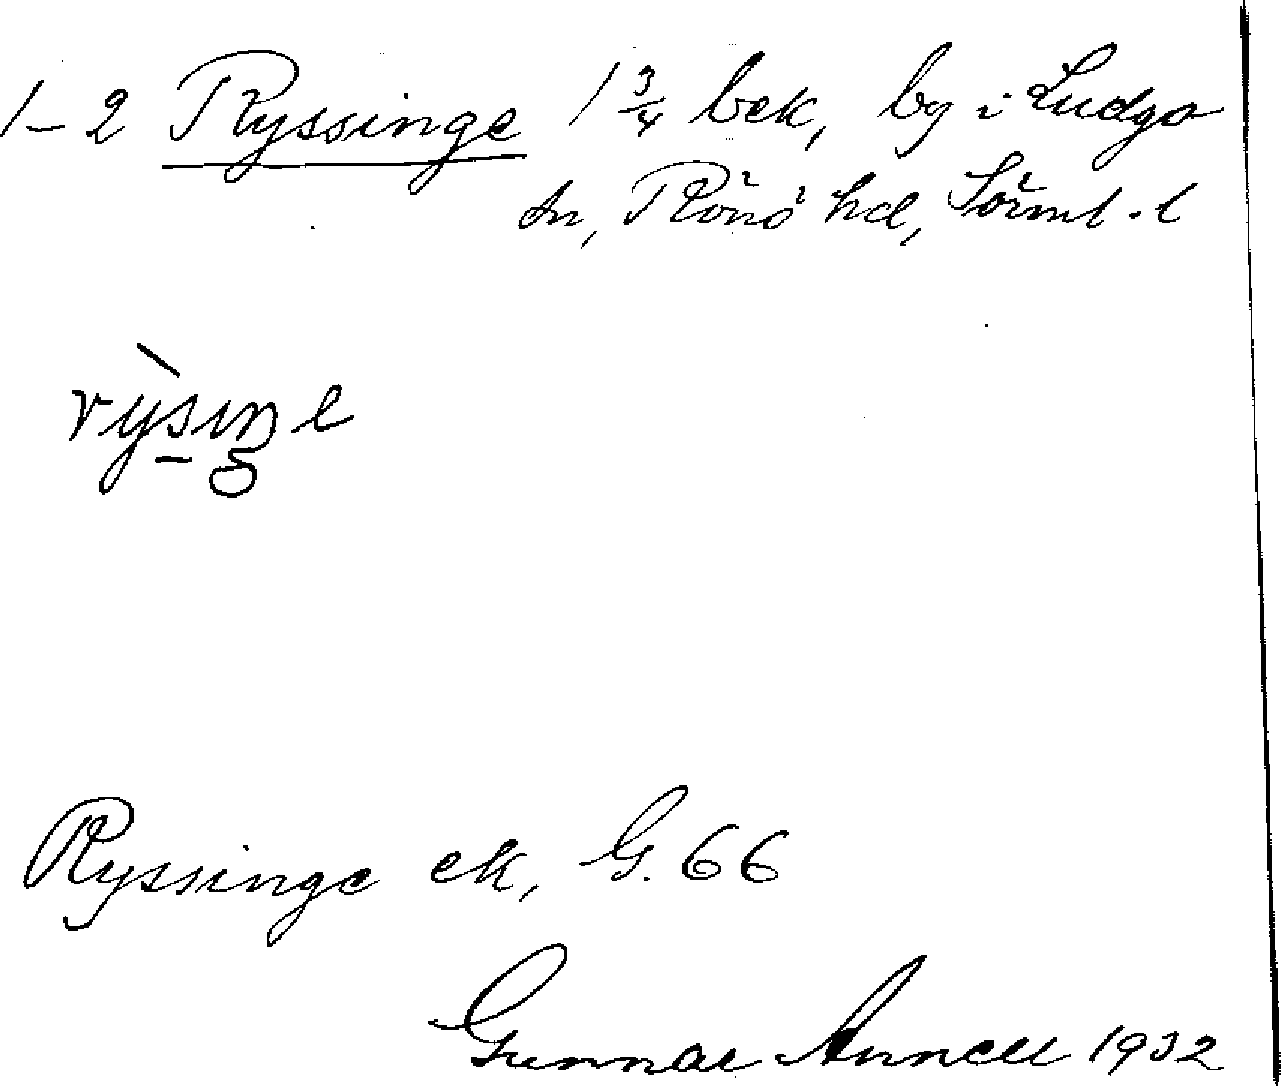 1-2 Ryssinge 1 3/4 bek, by i Ludgo
sn, Rönö hd, Sörml. l
rỳsiŋe
Ryssinge ek, G. 66
Gunnar Annell 1932